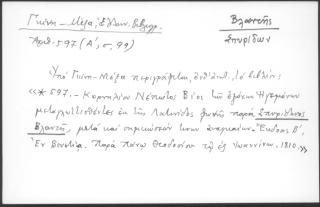 Γκίνη - Μέξα, Ἑλλην. Βιβλιογρ.
Βλαντῆς
Ἀριθ. 597 (Α', σ. 99)
Σπυρίδων
Ὑπὸ Γκίνη - Μέξα περιγράφεται, τὸ βιβλίον:
«*597.- Κορνηλίου Νέπωτος Βίοι τῶν Ἡγεμόνων
μεταγλωττισθέντες ἐκ τῆς Λατινίδος φωνῆς παρὰ Σπυρίδωνος
Βλαντῆ, μετὰ καὶ σημειώσεών τινων ἀναγκαίων. Ἔκδοσις Β'.
Ἐν Βενετίᾳ. Παρὰ Πάνῳ Θεοδοσίου τῷ ἐξ Ἰωαννίνων. 1810.»